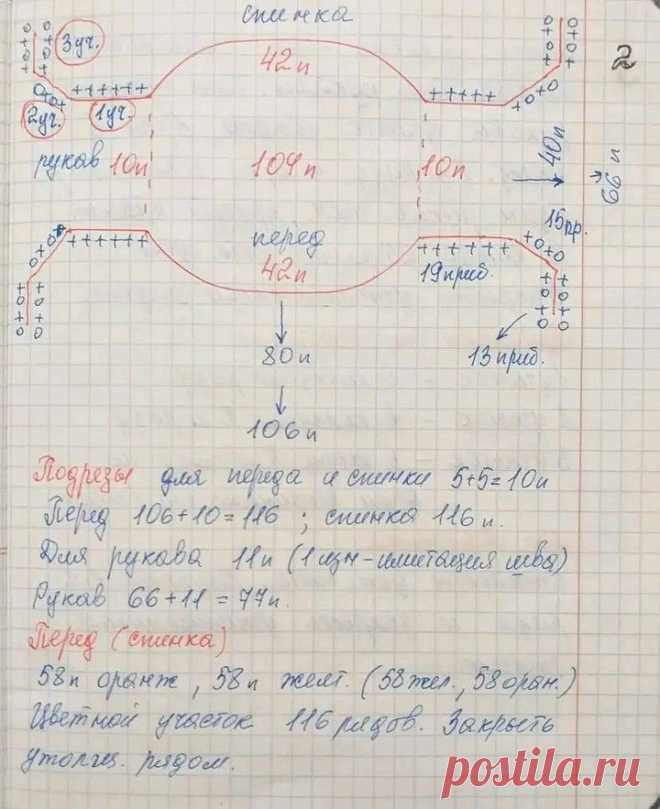 спинка
2
3уч.
42п
2уч.
1уч.
рукав
10п
104п
10п
40п
66п
перед
42п
15пр.
19приб.
13приб.
80п
106п
Подрезы для переда и спинки 5+5=10п
Перед 106+10=116 ; спинка 116п.
Для рукава 11п (1изн-имитация шва)
Рукав 66+11=77п.
Перед (спинка)
58п оранж, 58п желт. (58жел., 58оран.)
Цветной участок 116 рядов. Закрыть
утолщ. рядом.
postila.ru